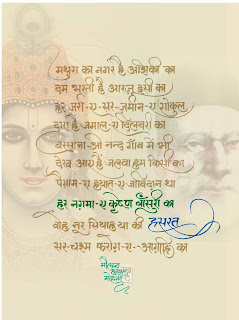 मथुरा का नगर है आशिकी का
दम भरती है आरज़ू इसी का
हर ज़र्रा-ए-सर-ज़मीन-ए-गोकुल
दारा है जमाल-ए-दिलबरी का
बरसाना-ओ-नन्द गाँव में भी
देख आए हैं जलवा हम किसी का
पैग़ाम-ए-हयात-ए-जाविदान था
हर नग़मा-ए-कृष्ण बाँसुरी का
वोह नूर सियाह था की हसरत
सर-चश्म फ़रोग़-ए-आगाही का
मौलाना
हसरत
मोहानी